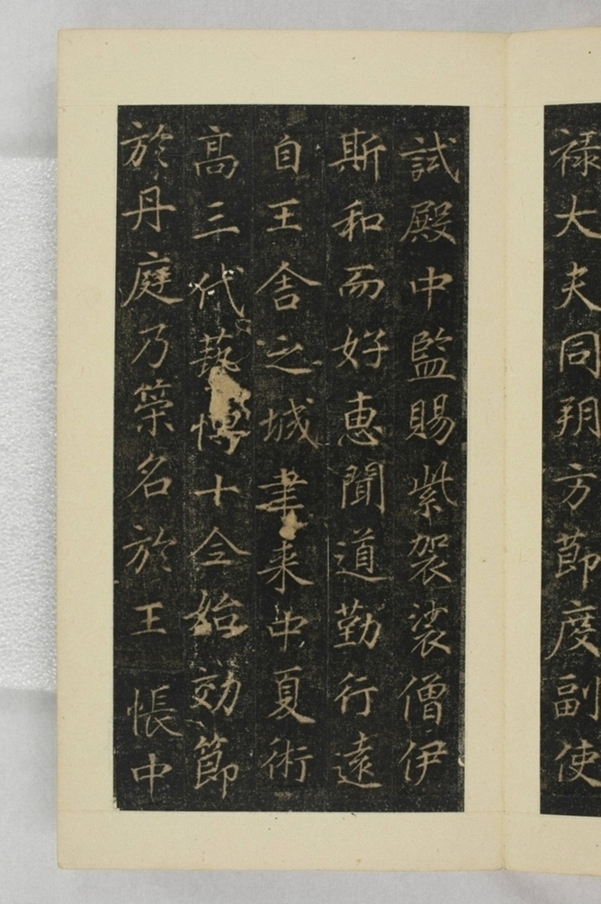 禄大夫同朔方節度副使
試殿中監賜紫袈裟僧伊
斯和而好惠聞道勤行遠
自王舍之城聿来中夏術
高三代藝博十全始効節
於丹庭乃策名於王帳中